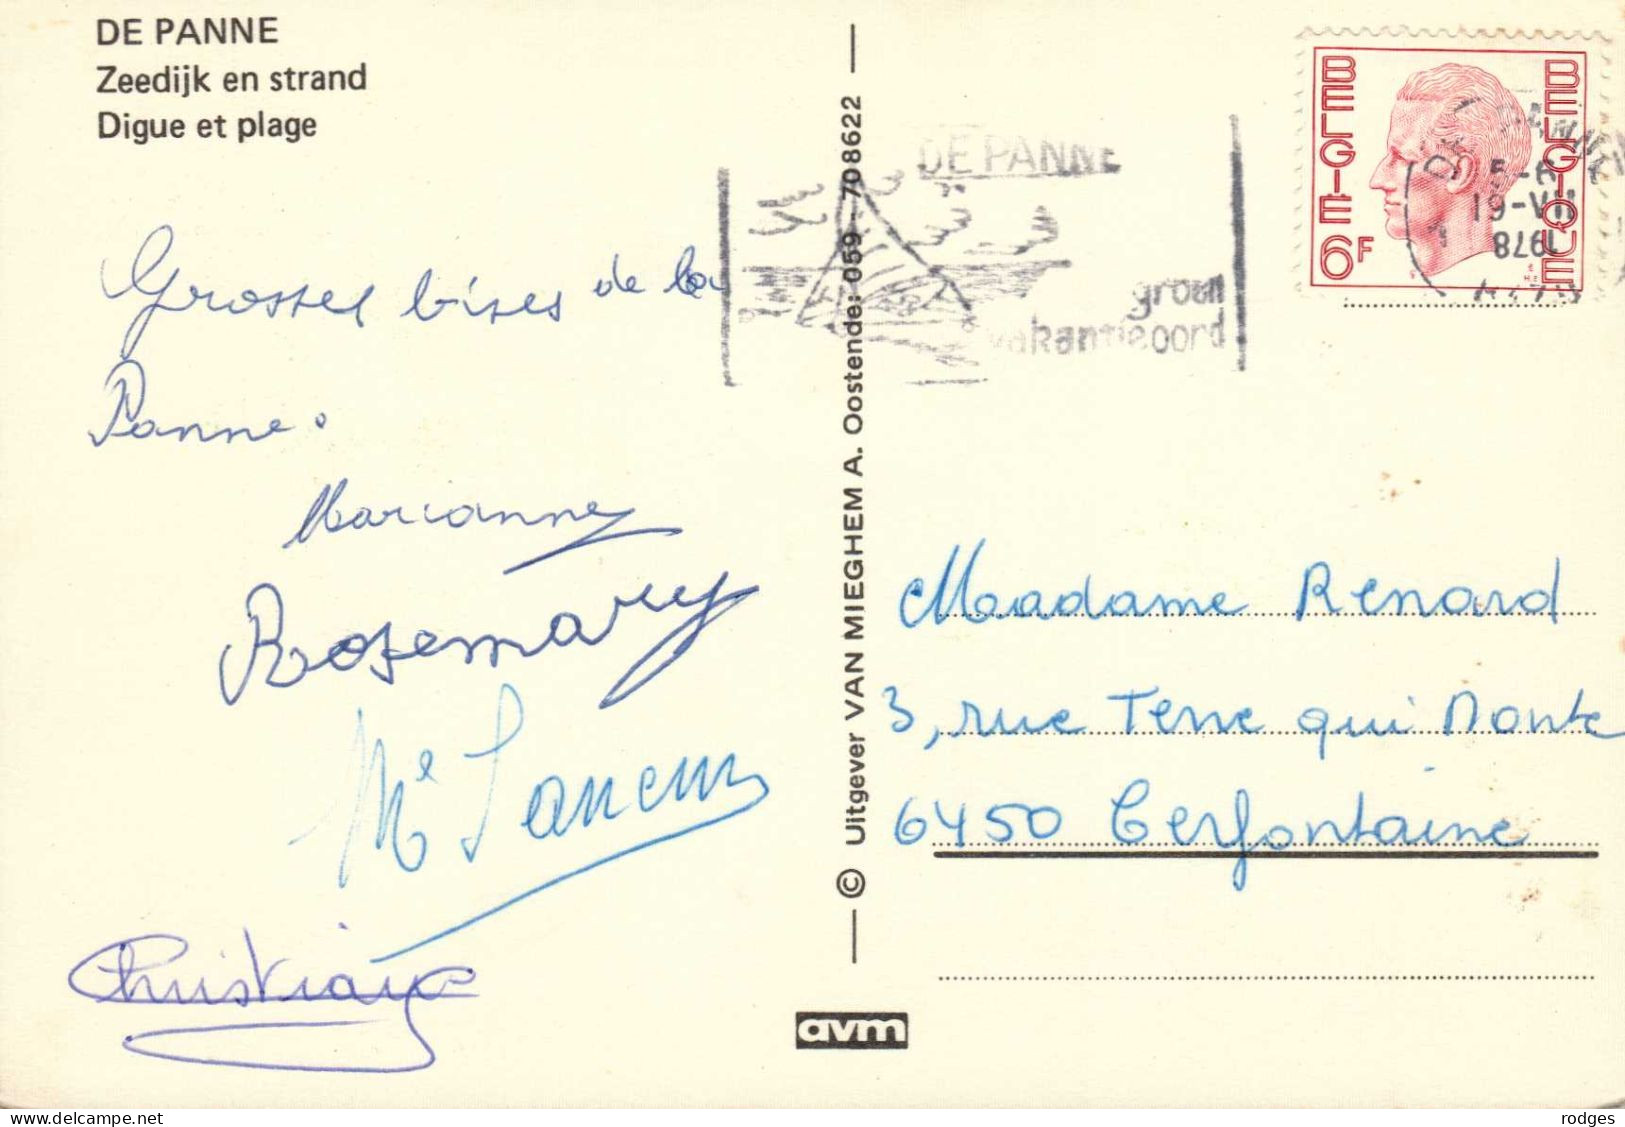 DE PANNE
Zeedijk en strand
Digue et plage
Grosses bises de la
Panne.
Marianne
Rosemary
Christiane
© Uitgever VAN MIEGHEM A. Oostende: 059 - 708622
avm
DE PANNE
groen
vakantieoord
BELGIE
BELGIQUE
6F
DE PANNE
19-VII
1978
Madame Renard
3, rue Terre qui Monte
6450 Cerfontaine
delcampe.net
rodges